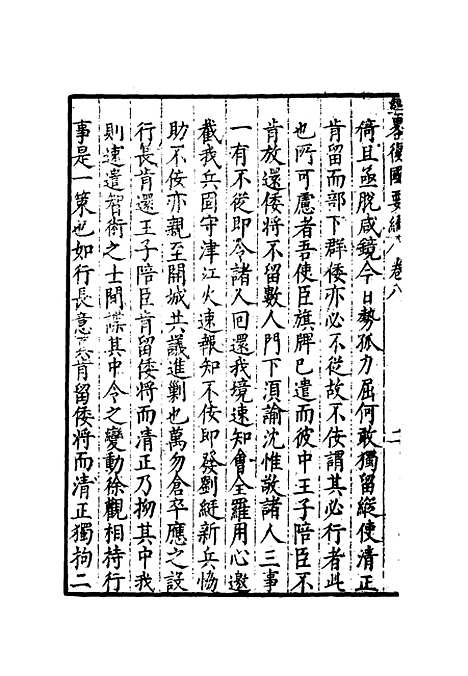 經畧復國要編 卷八 二
倚且亟脫咸鏡今日勢孤力屈何敢獨留縱使清正
肯留而部下群倭亦必不從故不佞謂其必行者此
也所可慮者吾使臣旗牌已遣而彼中王子陪臣不
肯放還倭將不留數人門下湏諭沈惟敬諸人三事
一有不從即令諸人回還我境速知會全羅用心邀
截我兵固守津江火速報知不佞即發劉綎新兵恊
助不佞亦親至開城共議進剿也萬勿倉卒應之設
行長肯還王子陪臣肯留倭將而清正乃拗其中我
則速遣智術之士間諜其中令之變動徐觀相待行
事是一策也如行長意不肯留倭將而清正獨拘二